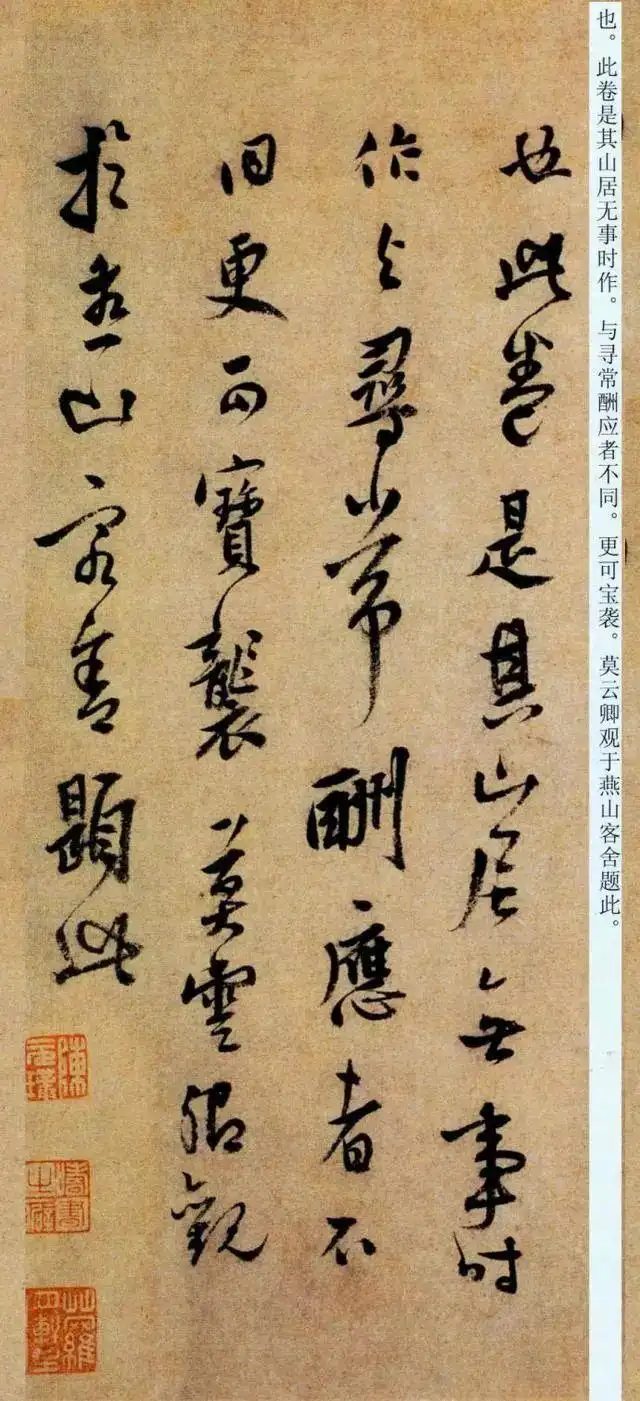 也。此卷是其山居无事时作。与寻常酬应者不同。更可宝袭。莫云卿观于燕山客舍题此。
也此卷是其山居無事时
作与尋常酬應者不
同更可寶襲莫雲卿觀
於燕山客舍題此